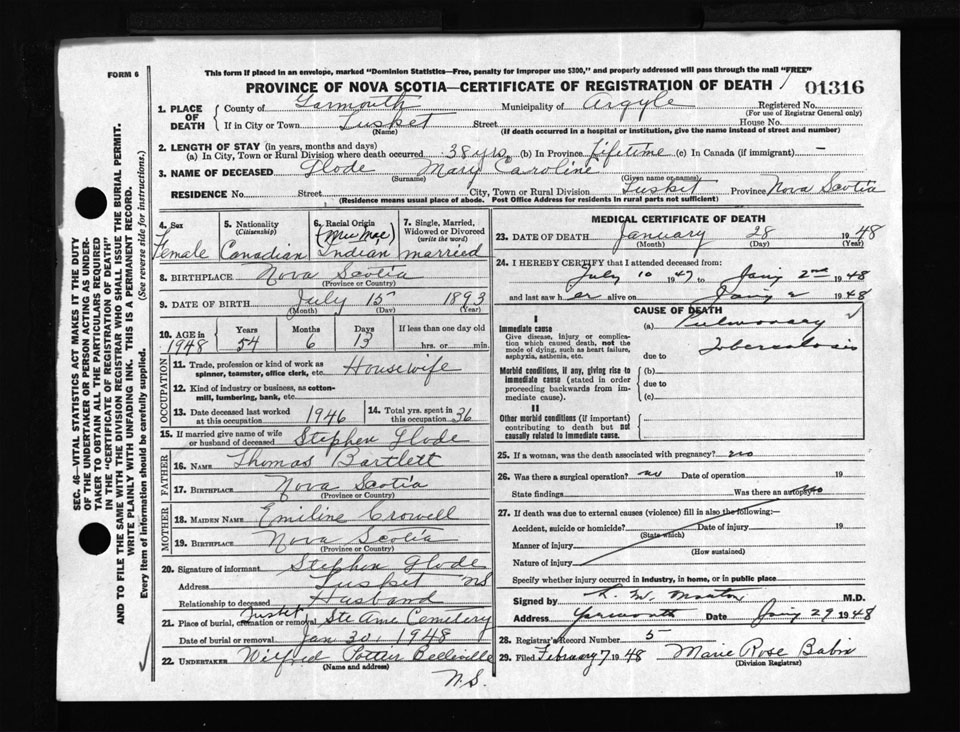 This form if placed in an envelope, marked "Dominion Statistics—Free, penalty for improper use $300," and properly addressed will pass through the mail "FREE"
FORM 6
PROVINCE OF NOVA SCOTIA—CERTIFICATE OF REGISTRATION OF DEATH 01316
1. PLACE OF DEATH County of Yarmouth Municipality of Argyle Registered No.
(For use of Registrar General only)
If in City or Town Tusket Street House No.
(Name) (If death occurred in a hospital or institution, give the name instead of street and number)
2. LENGTH OF STAY (in years, months and days)
(a) In City, Town or Rural Division where death occurred 38 yrs. (b) In Province Lifetime (c) In Canada (if immigrant) —
3. NAME OF DECEASED Glode Mary Caroline
(Surname) (Given name or names)
RESIDENCE No. Street City, Town or Rural Division Tusket Province Nova Scotia
(Residence means usual place of abode. Post Office Address for residents in rural parts not sufficient)
4. Sex 5. Nationality (Citizenship) 6. Racial Origin 7. Single, Married, Widowed or Divorced (write the word)
Female Canadian (Mic Mac) Indian married
8. BIRTHPLACE Nova Scotia
(Province or Country)
9. DATE OF BIRTH July 15 1893
(Month) (Day) (Year)
10. AGE in Years Months Days If less than one day old
1948 54 6 13 hrs. or min.
OCCUPATION
11. Trade, profession or kind of work as spinner, teamster, office clerk, etc. Housewife
12. Kind of industry or business, as cotton-mill, lumbering, bank, etc.
13. Date deceased last worked at this occupation 1946 14. Total yrs. spent in this occupation 36
15. If married give name of wife or husband of deceased Stephen Glode
FATHER
16. NAME Thomas Bartlett
17. BIRTHPLACE Nova Scotia
(Province or Country)
MOTHER
18. MAIDEN NAME Emiline Crowell
19. BIRTHPLACE Nova Scotia
(Province or Country)
20. Signature of informant Stephen Glode
Address Tusket NS
Relationship to deceased Husband
21. Place of burial, cremation or removal Tusket Ste Anne Cemetery
Date of burial or removal Jan 30, 1948
22. UNDERTAKER Wilfred Pottier Belleville
(Name and address) N.S.
MEDICAL CERTIFICATE OF DEATH
23. DATE OF DEATH January 28 1948
(Month) (Day) (Year)
24. I HEREBY CERTIFY that I attended deceased from:
July 10 1947 to Jany 2nd 1948
and last saw her alive on Jany 2 1948
CAUSE OF DEATH
I
Immediate cause (a) Pulmonary
Give disease, injury or complication which caused death, not the mode of dying, such as heart failure, asphyxia, asthenia, etc. due to Tuberculosis
Morbid conditions, if any, giving rise to immediate cause (stated in order proceeding backwards from immediate cause). (b)
due to
(c)
II
Other morbid conditions (if important) contributing to death but not causally related to immediate cause.
25. If a woman, was the death associated with pregnancy? no
26. Was there a surgical operation? no Date of operation 19
State findings Was there an autopsy? no
27. If death was due to external causes (violence) fill in also the following:—
Accident, suicide or homicide? Date of injury 19
(State which)
Manner of injury
(How sustained)
Nature of injury
Specify whether injury occurred in industry, in home, or in public place
Signed by M.D.
Address Yarmouth Date Jany 29 1948
28. Registrar's Record Number 5
29. Filed February 7 1948 Marie Rose Babin
(Division Registrar)
SEC. 46—VITAL STATISTICS ACT MAKES IT THE DUTY
OF THE UNDERTAKER OR PERSON ACTING AS UNDER-
TAKER TO OBTAIN ALL THE PARTICULARS REQUIRED
IN THE "CERTIFICATE OF REGISTRATION OF DEATH"
AND TO FILE THE SAME WITH THE DIVISION REGISTRAR WHO SHALL ISSUE THE BURIAL PERMIT.
WRITE PLAINLY WITH UNFADING INK. THIS IS A PERMANENT RECORD.
Every item of information should be carefully supplied. (See reverse side for instructions.)